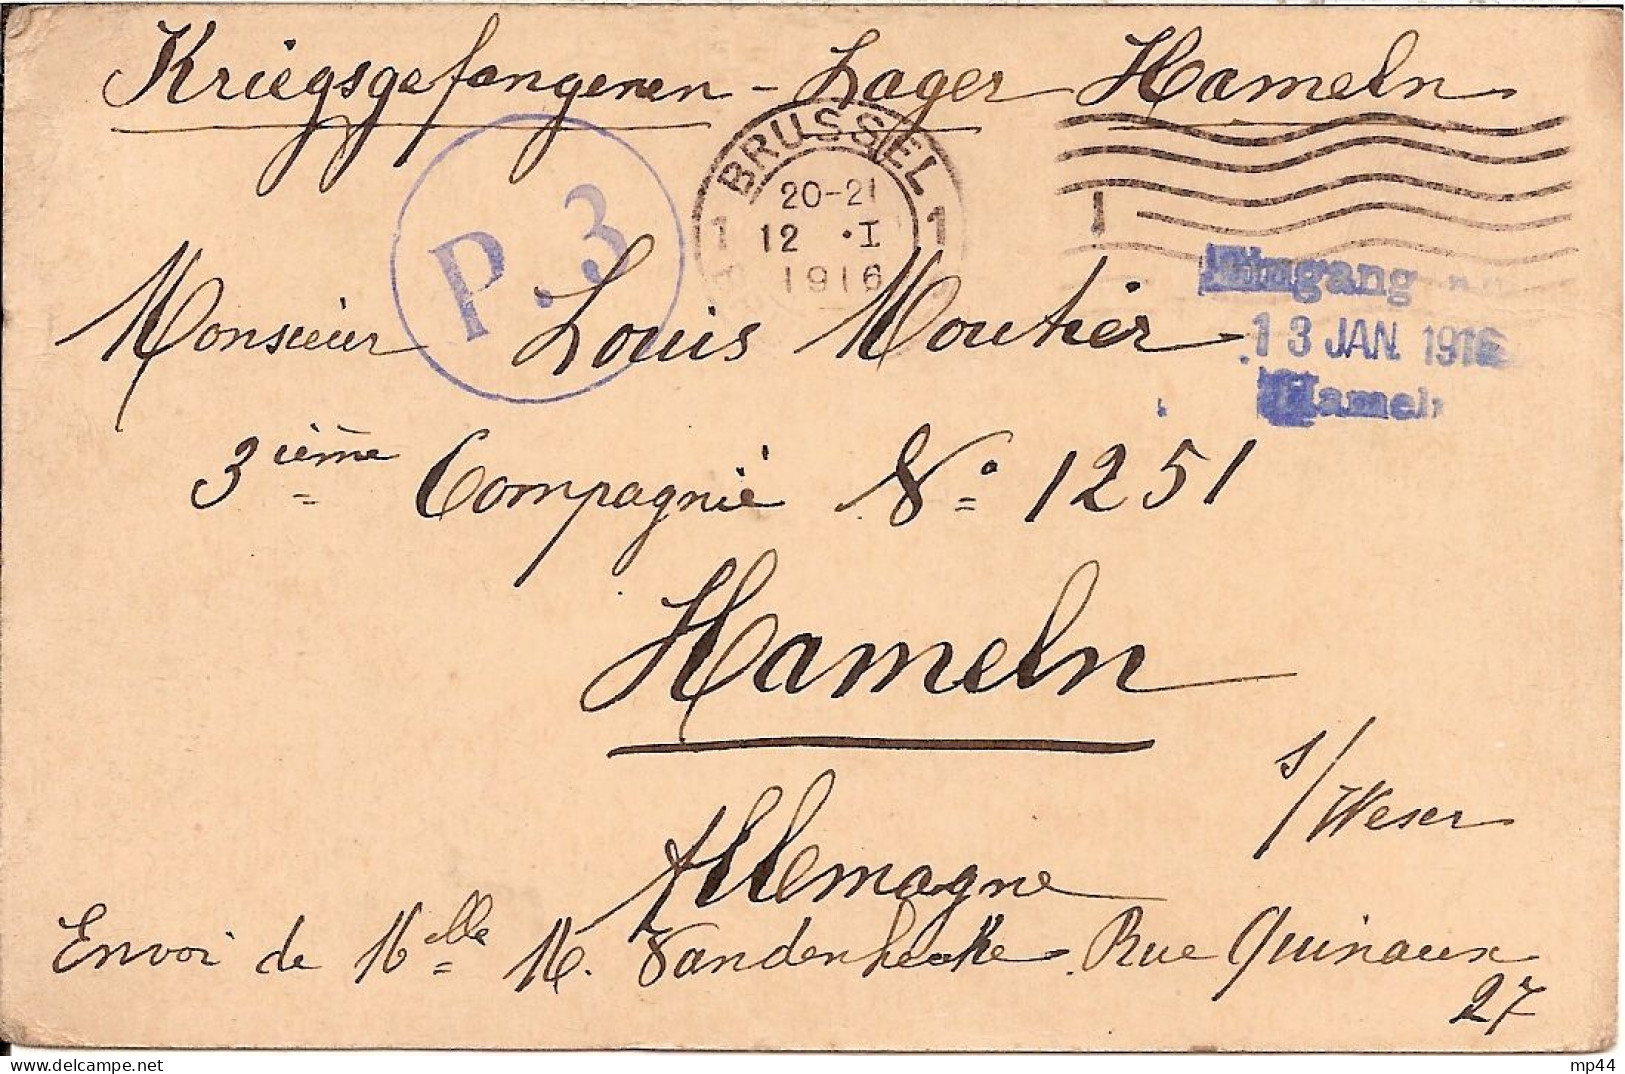 Kriegsgefangenen - Lager Hameln
P.3
BRUSSEL
1 1
20-21
12 .I
1916
1
Eingang
13 JAN. 1916
Hameln
Monsieur Louis Moutier
3ième Compagnie No. 1251
Hameln
s/Weser
Allemagne
Envoi de Melle M. Vandenhecke Rue Quinaux
27
mp44